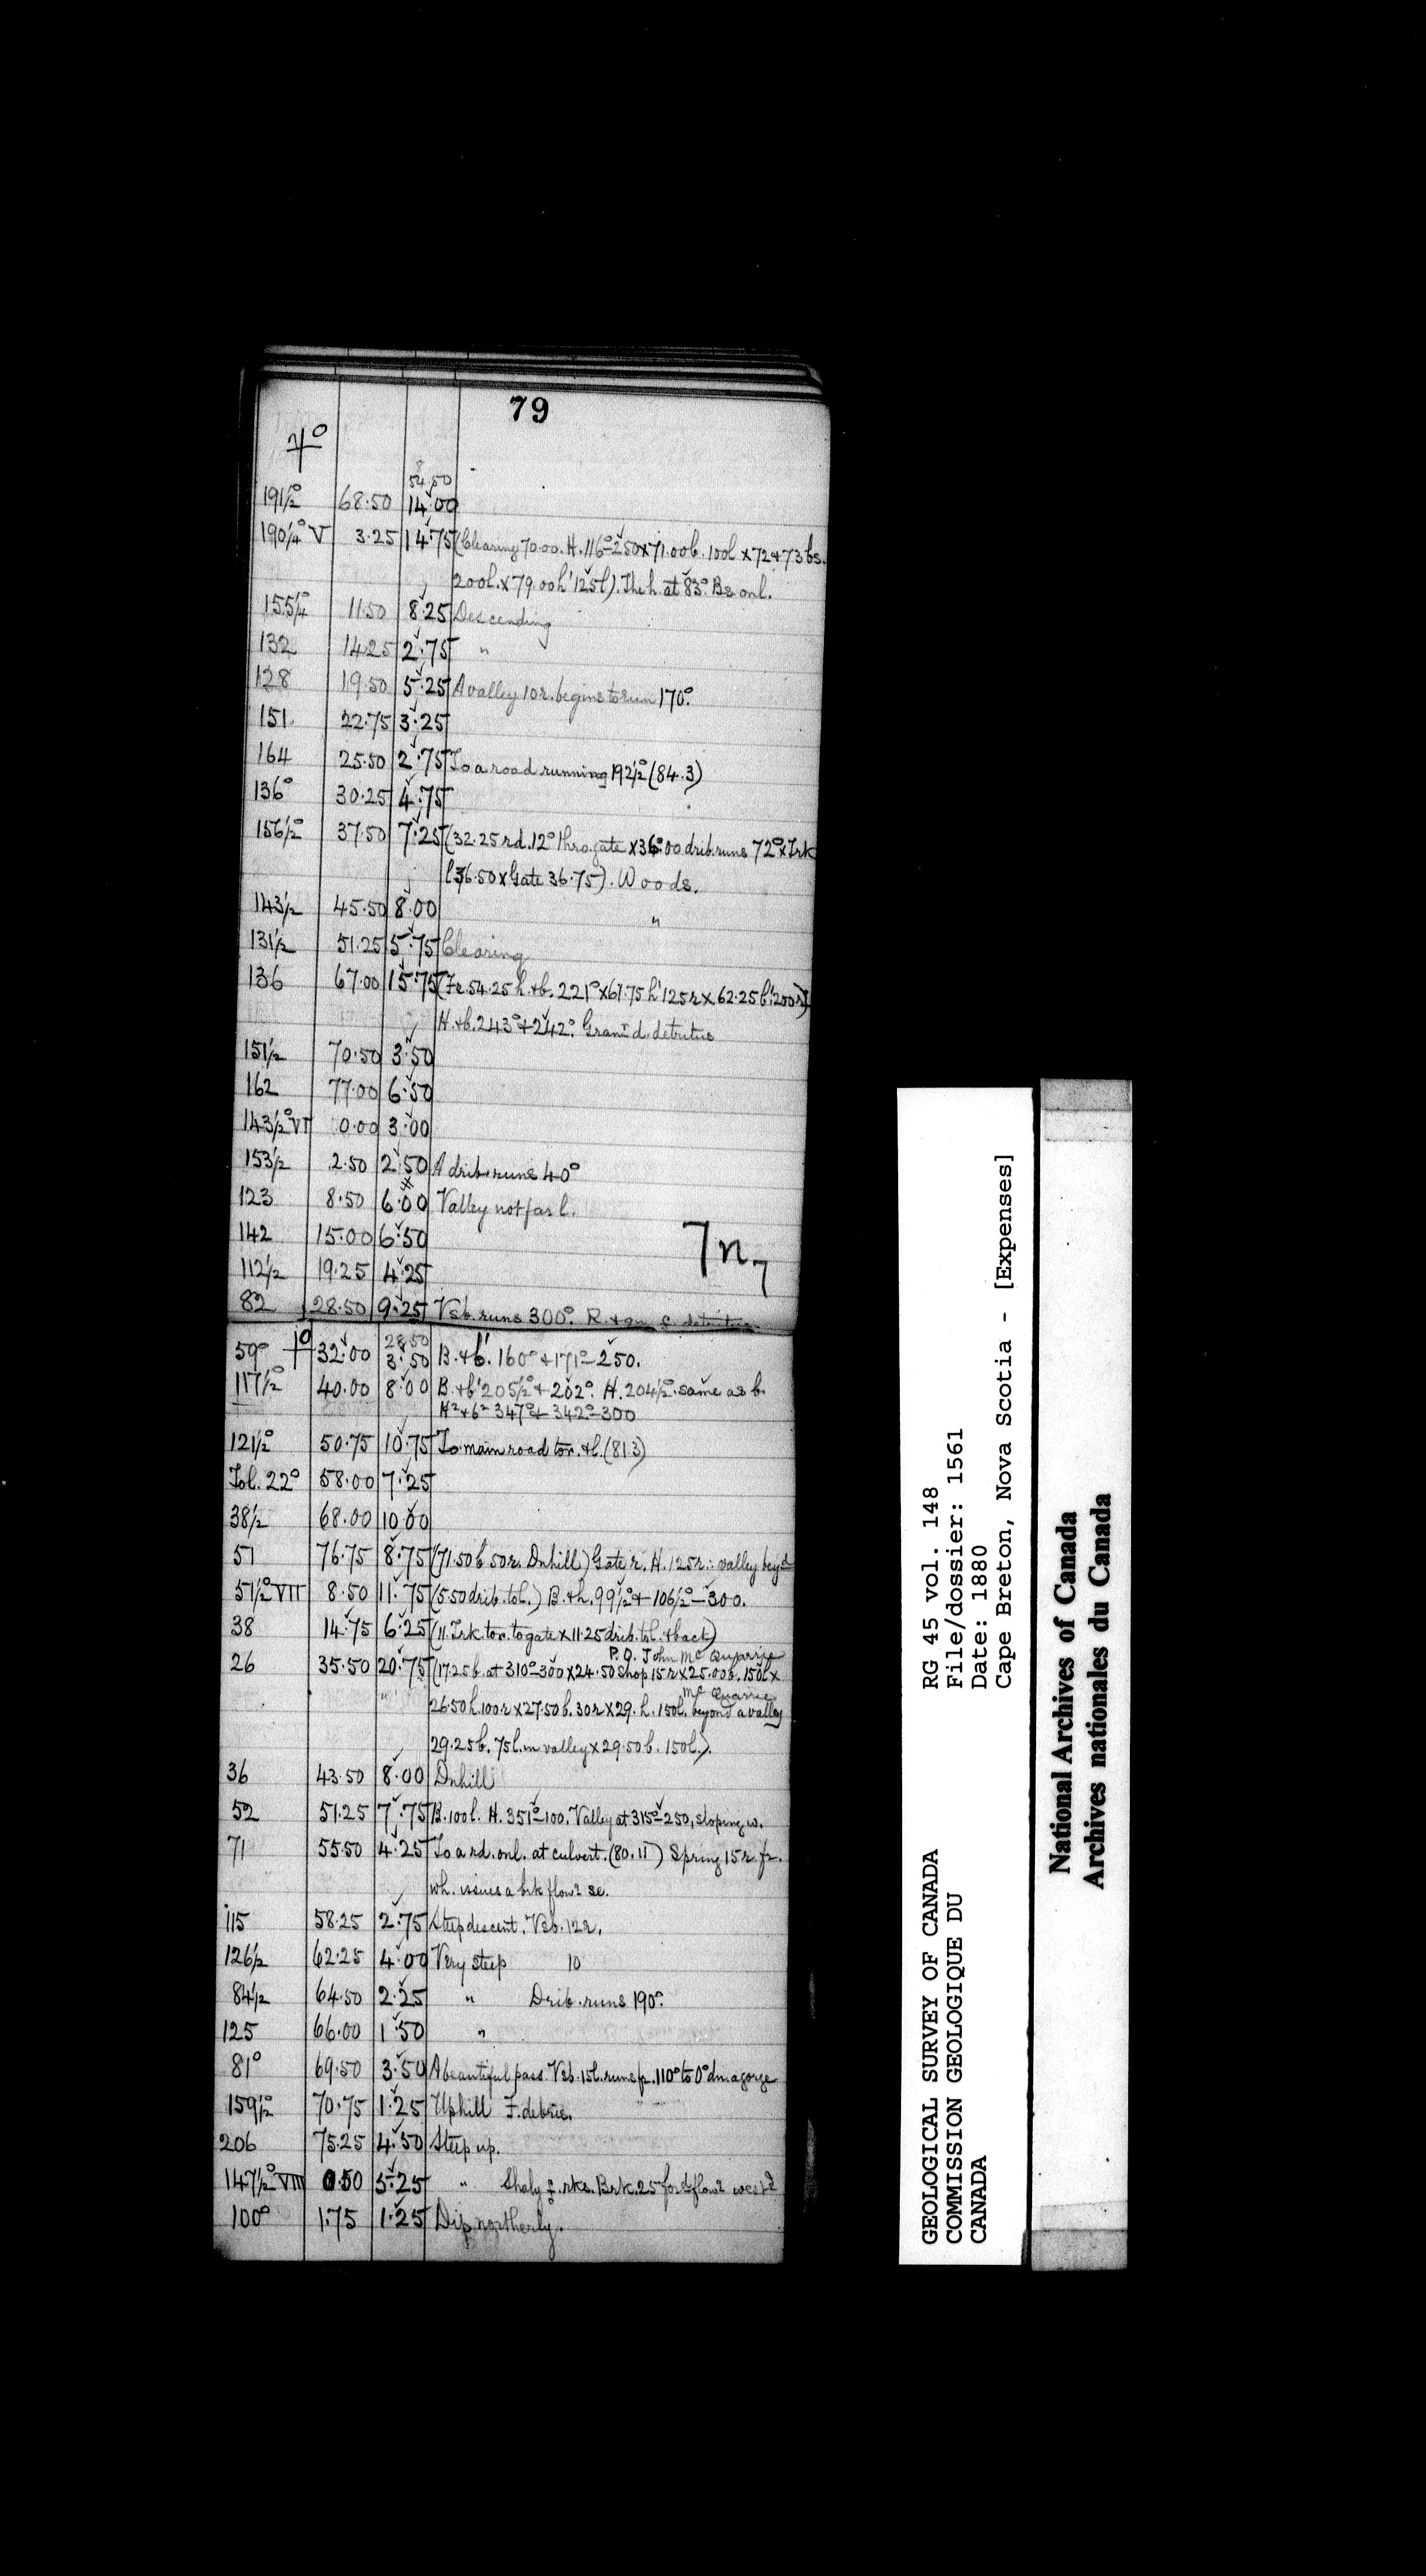 79
54.50
191½° 68.50 14.00
190¼° V 3.25 14.75 (Clearing 70.00. H. 116°-250 x 71.00 b. 100l x 72 & 73 bs.
200l. x 79.00 h' 125l). The h. at 83°. Bs onl.
155¼° 11.50 8.25 Descending
132 14.25 2.75 "
128 19.50 5.25 A valley 10r. begins to run 170°.
151 22.75 3.25
164 25.50 2.75 To a road running 192½° (84.3)
136° 30.25 4.75
156½° 37.50 7.25 (32.25 rd. 12° thro. gate x 36.00 drib. runs 72° x Trk
l 36.50 x Gate 36.75). Woods.
143½ 45.50 8.00 "
131½ 51.25 5.75 Clearing
136 67.00 15.75 (Fr. 54.25 h. & b. 221° x 61.75 h' 125r x 62.25 b' 200r)
H. & b. 243° & 242°. Gran^t d. detritus
151½ 70.50 3.50
162 77.00 6.50
143½° VI 0.00 3.00
153½ 2.50 2.50 A drib. runs 40°
123 8.50 6.00 Valley not far l.
142 15.00 6.50
7n7
112½ 19.25 4.25
82 28.50 9.25 Vsb. runs 300°. R. & gn detritus
28.50
59° 32.00 3.50 B. & b'. 160° & 171°-250.
117½° 40.00 8.00 B. & b' 205½° & 202°. H. 204½°. same as b.
H² & b² 347° & 342°-300
121½° 50.75 10.75 To main road to r. & l. (81.3)
To l. 22° 58.00 7.25
38½ 68.00 10.00
51 76.75 8.75 (71.50 b 50r. Dnhill) Gate r. H. 125r.: valley bey^d
51½° VII 8.50 11.75 (5.50 drib. to l.) B. & h. 99½° & 106½°-300.
38 14.75 6.25 (11. Trk. to r. to gate x 11.25 drib. to l. & back)
P.O. John McQuarrie
26 35.50 20.75 (17.25 b. at 310°-300 x 24.50 shop 15r x 25.00 b. 150l x
McQuarrie
" 26.50 h. 100r x 27.50 b. 30r x 29. h. 150l. beyond a valley
29.25 b. 75l. in valley x 29.50 b. 150l.).
36 43.50 8.00 Dnhill
52 51.25 7.75 B. 100l. H. 351°-100. Valley at 315°-250, sloping w.
71 55.50 4.25 To a rd. onl. at culvert. (80.11) Spring 15r. fr.
wh. issues a brk flow^g se.
115 58.25 2.75 Steep descent. Vsb. 12r.
126½ 62.25 4.00 Very steep 10
84½ 64.50 2.25 " Drib. runs 190°.
125 66.00 1.50 "
81° 69.50 3.50 A beautiful pass. Vsb. 15l. runs fr. 110° to 0° dn. a gorge
159½° 70.75 1.25 Uphill F. debris.
206 75.25 4.50 Steep up.
147½° VIII 0.50 5.25 " Shaly f. rks. Brk. 25 for^d flow^g west^d
100° 1.75 1.25 Dip northerly.
RG 45 vol. 148
File/dossier: 1561
Date: 1880
Cape Breton, Nova Scotia - [Expenses]
GEOLOGICAL SURVEY OF CANADA
COMMISSION GEOLOGIQUE DU
CANADA
National Archives of Canada
Archives nationales du Canada